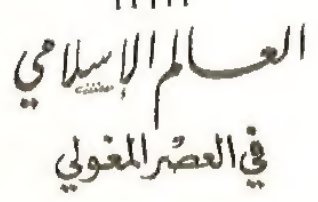 العالم الإسلامي
في العصر المغولي